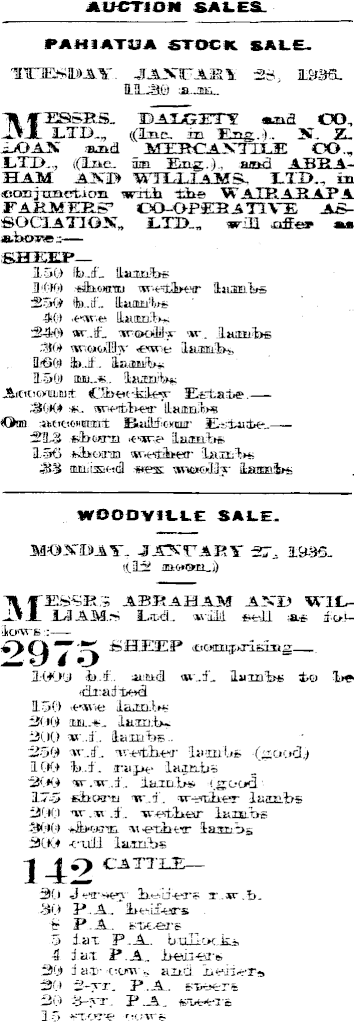 AUCTION SALES.
PAHIATUA STOCK SALE.
TUESDAY, JANUARY 28, 1936.
11.30 a.m.
MESSRS. DALGETY and CO,
LTD., (Inc. in Eng.), N. Z.
LOAN and MERCANTILE CO.,
LTD., (Inc. in Eng.), and ABRA-
HAM AND WILLIAMS, LTD., in
conjunction with the WAIRARAPA
FARMERS' CO-OPERATIVE AS-
SOCIATION, LTD., will offer as
above:—
SHEEP—
150 b.f. lambs
100 shorn wether lambs
250 b.f. lambs
40 ewe lambs
240 w.f. woolly w. lambs
30 woolly ewe lambs
160 b.f. lambs
150 m.s. lambs
Account Checkley Estate.—
300 s. wether lambs
On account Balfour Estate.—
213 shorn ewe lambs
156 shorn wether lambs
33 mixed sex woolly lambs
WOODVILLE SALE.
MONDAY, JANUARY 27, 1936.
(12 noon.)
MESSRS ABRAHAM AND WIL-
LIAMS Ltd. will sell as fol-
lows:—
2975 SHEEP comprising—
1000 b.f. and w.f. lambs to be
drafted
150 ewe lambs
200 m.s. lambs
200 w.f. lambs.
250 w.f. wether lambs (good)
100 b.f. rape lambs
200 w.w.f. lambs (good
175 shorn w.f. wether lambs
200 w.w.f. wether lambs
300 shorn wether lambs
200 cull lambs
142 CATTLE—
20 Jersey heifers r.w.b.
30 P.A. heifers
8 P.A. steers
5 fat P.A. bullocks
4 fat P.A. heifers
20 fat cows and heifers
20 2-yr. P.A. steers
20 3-yr. P.A. steers
15 store cows